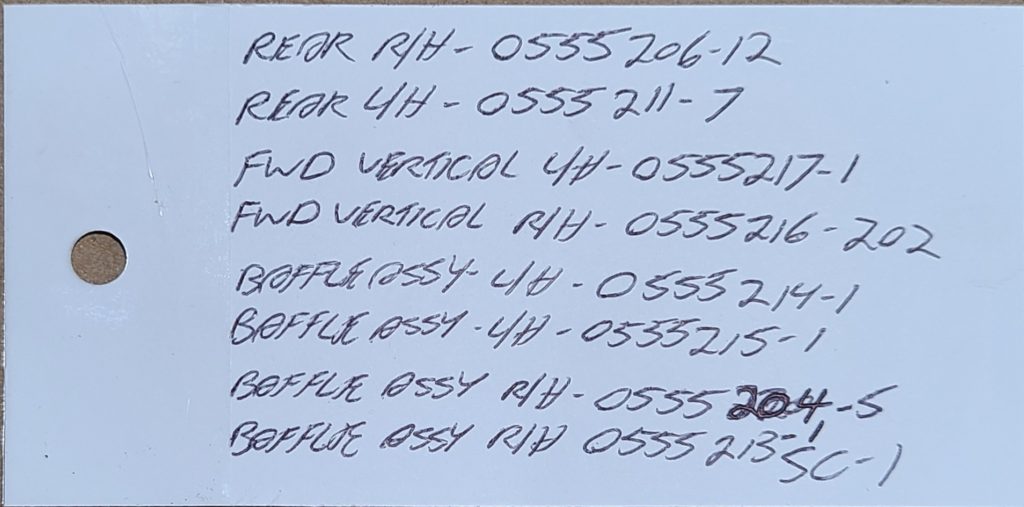 REAR R/H- 0555206-12
REAR L/H - 0555211-7
FWD VERTICAL L/H-0555217-1
FWD VERTICAL R/H- 0555216-202
BAFFLE ASSY- L/H - 0555214-1
BAFFLE ASSY - L/H - 0555215-1
BAFFLE ASSY R/H- 0555204-5
BAFFLE ASSY R/H 0555213-1
SC-1